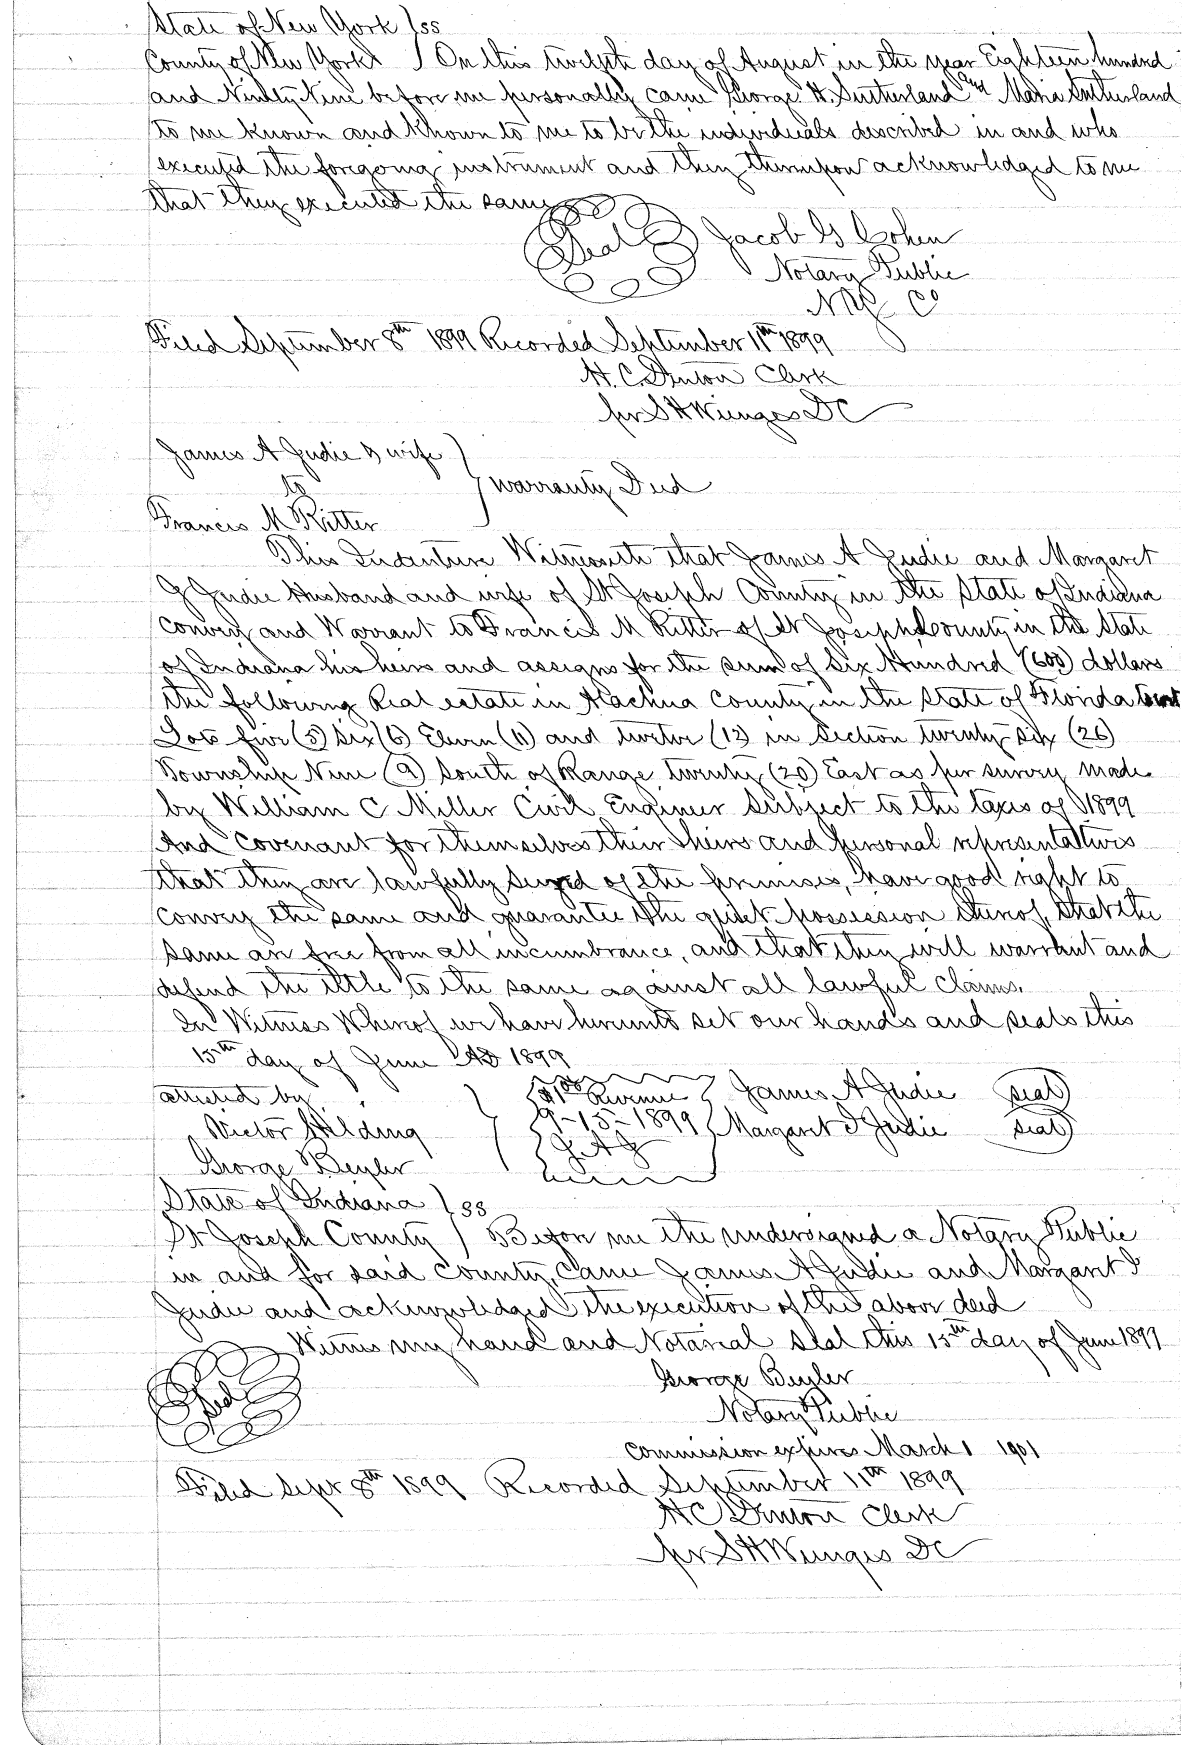 State of New York } ss
County of New York } On this twelfth day of August in the year Eighteen hundred
and Ninety Nine before me personally came George H. Sutherland and Maria Sutherland
to me known and known to me to be the individuals described in and who
executed the foregoing instrument and they thereupon acknowledged to me
that they executed the same
Seal Jacob G Cohen
Notary Public
N Y Co
Filed September 8th 1899 Recorded September 11th 1899
H. C. Denton Clerk
per S H Wienges DC
James A Judie & wife
to } Warranty Deed
Francis M Ritter
This Indenture Witnesseth that James A Judie and Margaret
J Judie Husband and wife of St Joseph County in the State of Indiana
Convey and Warrant to Francis M Ritter of St Joseph County in the State
of Indiana his heirs and assigns for the sum of Six Hundred (600) dollars
the following Real estate in Alachua County in the State of Florida
Lots five (5) Six (6) Eleven (11) and twelve (12) in Section twenty-six (26)
Township Nine (9) South of Range twenty (20) East as per survey made
by William C Miller Civil Engineer Subject to the taxes of 1899
And Covenant for themselves their heirs and personal representatives
that they are lawfully seized of the premises, have good right to
convey the same and guarantee the quiet possession thereof, that the
same are free from all incumbrance, and that they will warrant and
defend the title to the same against all lawful claims.
In Witness Whereof we have hereunto set our hands and seals this
15th day of June AD 1899
attested by } $1 00 Revenue James A Judie seal
Victor Hilding 9-15-1899 Margaret J Judie seal
George Beyler J. A J
State of Indiana } ss
St Joseph County } Before me the undersigned a Notary Public
in and for said County, came James A Judie and Margaret J
Judie and acknowledged the execution of the above deed
Witness my hand and Notarial Seal this 15th day of June 1899
Seal George Beyler
Notary Public
Commission expires March 1 1901
Filed Sept 8th 1899 Recorded September 11th 1899
H C Denton Clerk
per S H Wienges DC